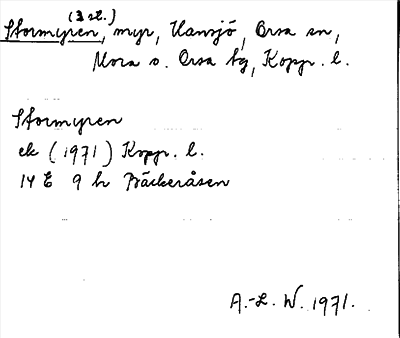 (3 st.)
Stormyren, myr, Hansjö, Orsa sn,
Mora o. Orsa tg, Kopp. l.
Stormyren
ek (1971) Kopp. l.
14 E 9 h Bäckeråsen
A.-L. W. 1971.